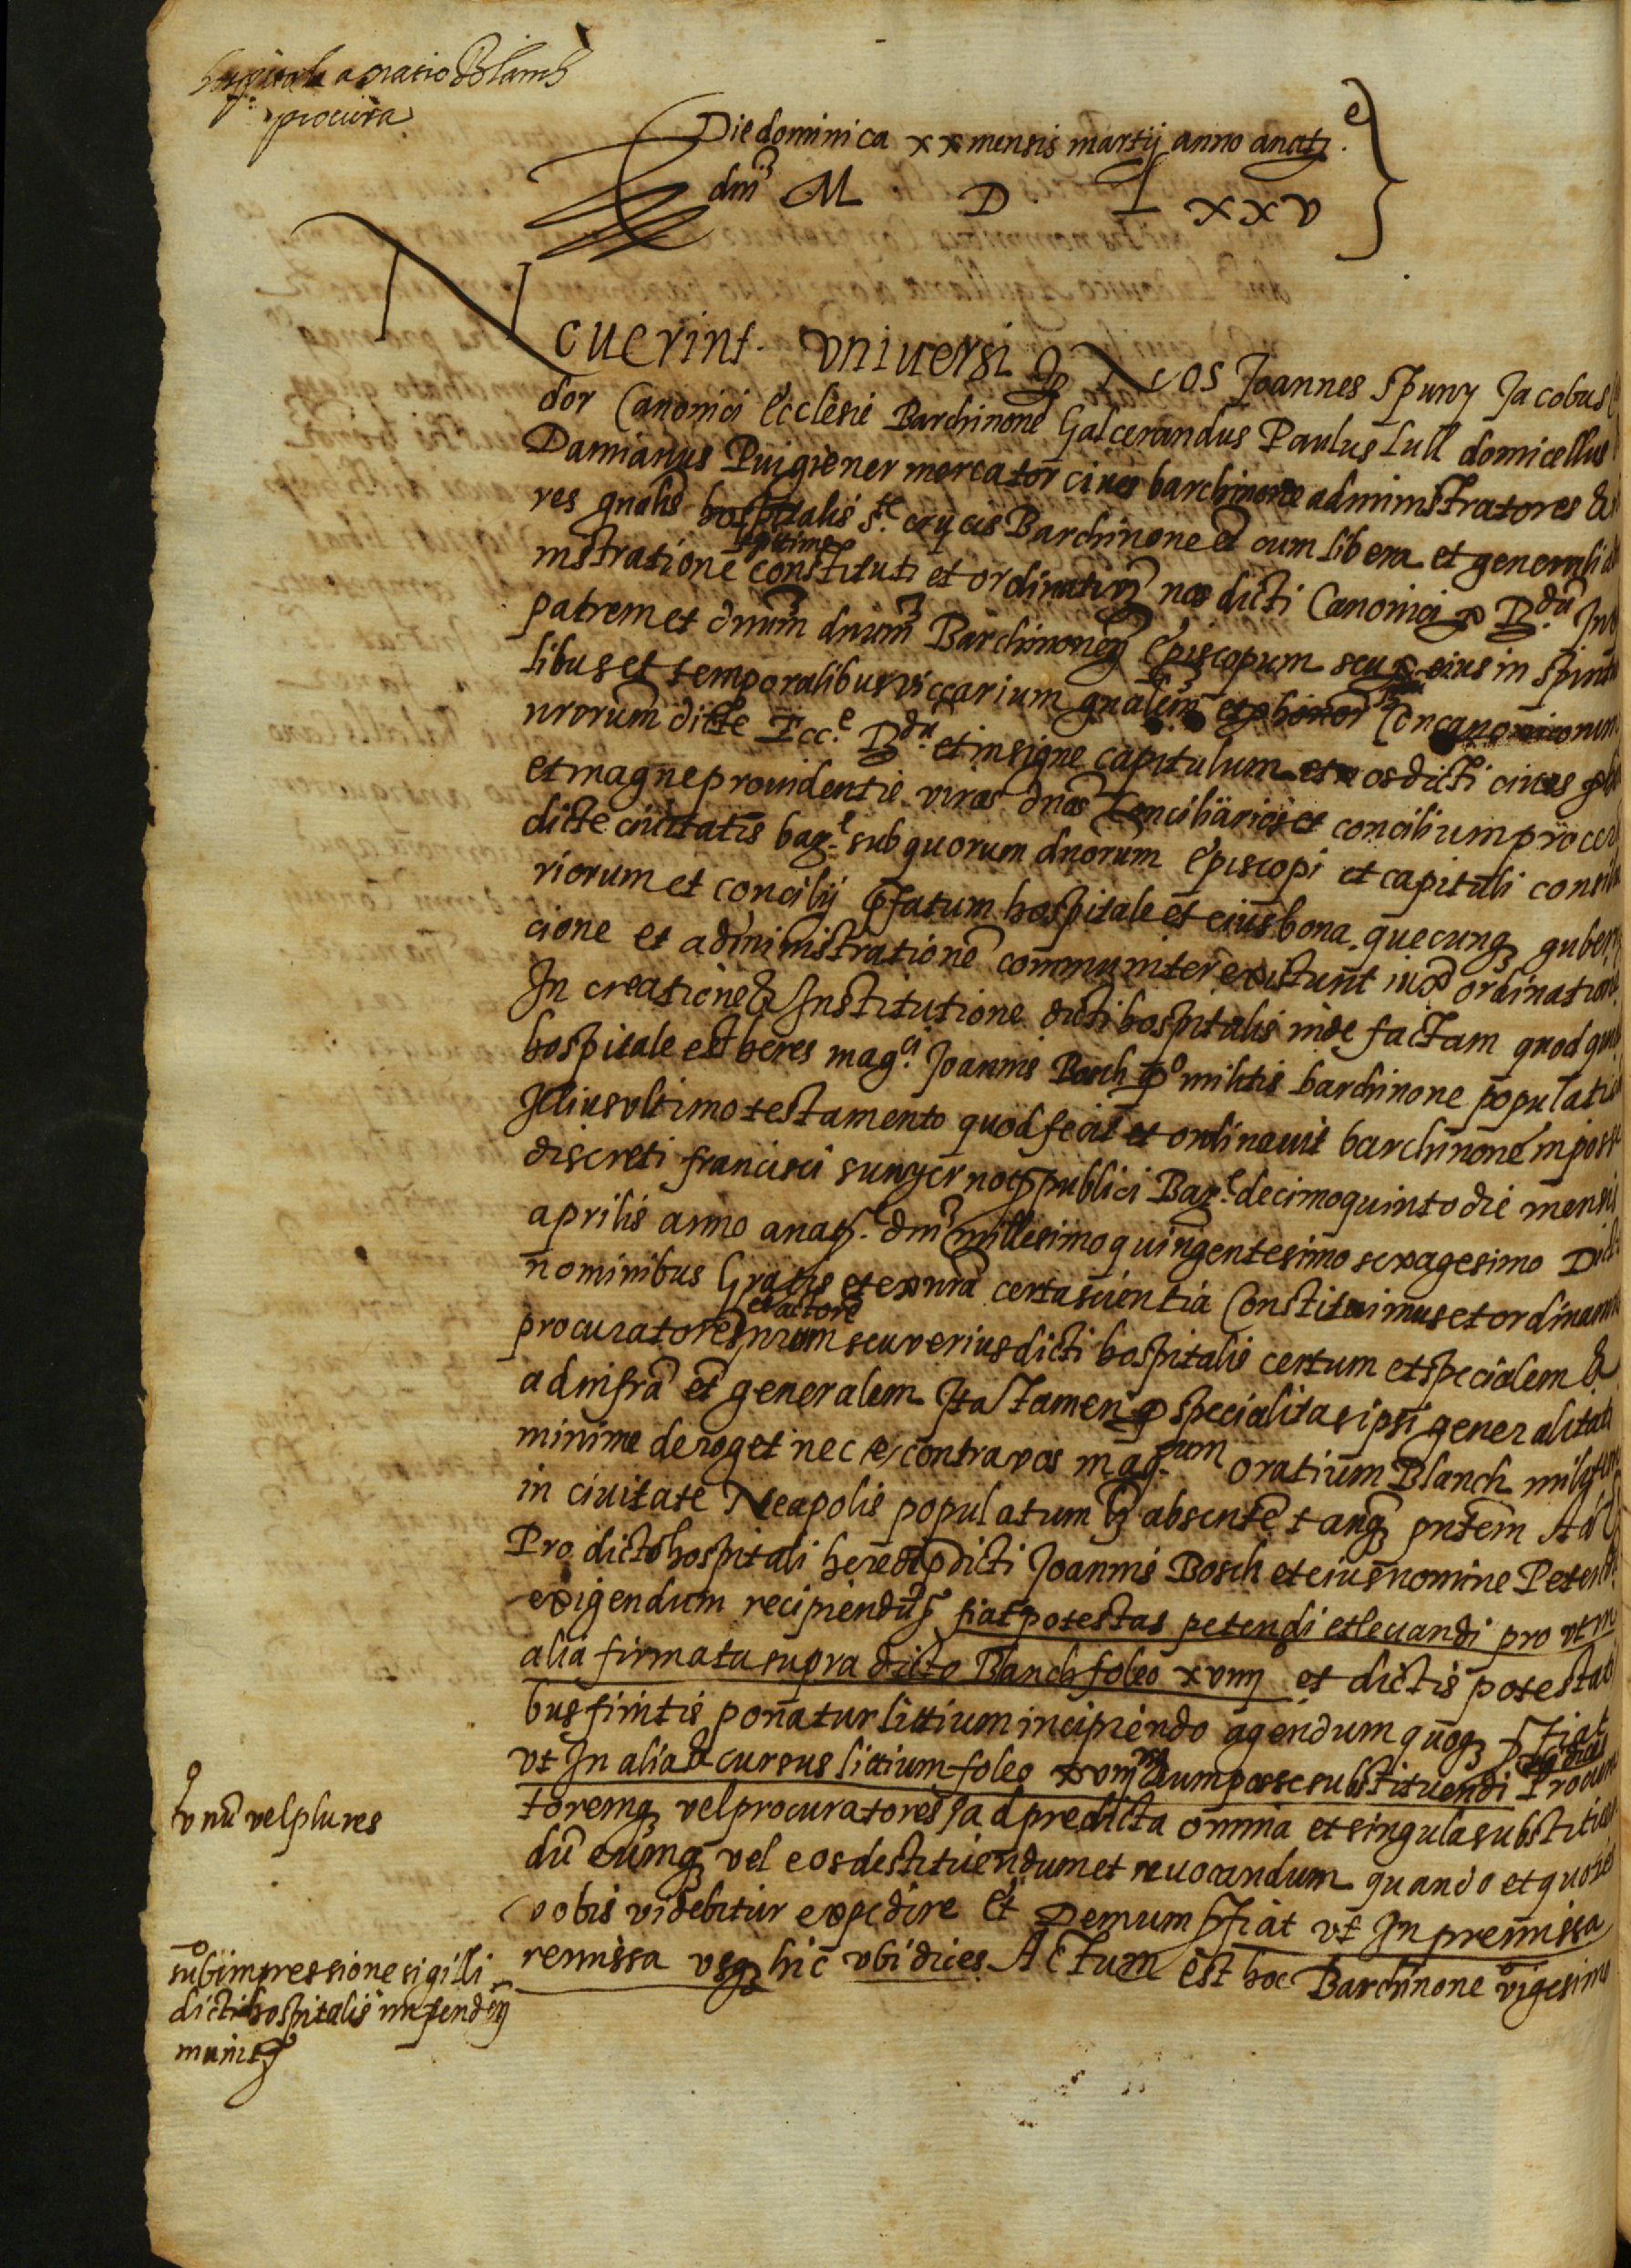 procura
Die dominica xx mensis martij anno a natj.e
dnĩ M D L XXV
Noverint universi q Nos Joannes Spuny Jacobus
dor Canonici Ecclesie Barchinone Galcerandus Paulus Lull domicellus
Damianus Puigvener mercator cives barchinone administratores &
res gnales hospitalis s.te crucis Barchinone et cum libera et generali
legitime
nistratione constituti et ordinati nos dicti Canonici p R.dũ
patrem et dnum dnum Barchinoneñ Episcopum seu eius in spiritu
libus et temporalibus viccarium gnalem Concanonicorum
nrorum dicte Ecc.e R.du et insigne capitulum et nos dicti cives
et magne providentie viros dnos Conciliarios et concilium
dicte civitatis bar.e sub quorum dnorum Episcopi et capituli
riorum et concilij pfatum hospitale et eius bona quecunq
cione et administratione communiter existunt iux ordinatione
In creatione & Institutione dicti hospitalis inde factam quod
hospitale est heres mag.ci Joannis Bosch qº militis barchinone populati
Illius ultimo testamento quod fecit et ordinavit barchinone in posse
discreti francisci sunyer noty publici Bar.e decimoquinto die mensis
aprilis anno a natj. dnĩ millesimo quingentesimo sexagesimo
nominibus Gratis et ex nrã certa scientia Constituimus et ordinamus
et actore
procuratorẽ nrum seu verius dicti hospitalis certum et specialem &
ad infrã et generalem Ita tamen q specialitas ipsi generalitati
minime deroget nec e contra vos mag.cum oratium Blanch militem
in civitate Neapolis populatum absentẽ tanq pntem Ad
Pro dicto hospitali herede pdicti Joannis Bosch et eius nomine
exigendum recipiendũ fiat potestas petendi et levandi pro ut in
alia firmata supra dicto Blanch foleo xviiij et dictis potestati
bus finitis ponatur littium incipiendo agendum quoq fiat
ut In alia & cursus littium foleo xviiij cum posse substituendi
toremq vel procuratores ad predicta omnia et singula
dũ eumq vel eos destituendum et revocandum quando et
vobis videbitur expedire Et Demum fiat ut In premissa
remissa usq hic ubi dices Actum est hoc Barchinone vigesimo
unũ vel plures
sub impressione sigilli
dicti hospitalis